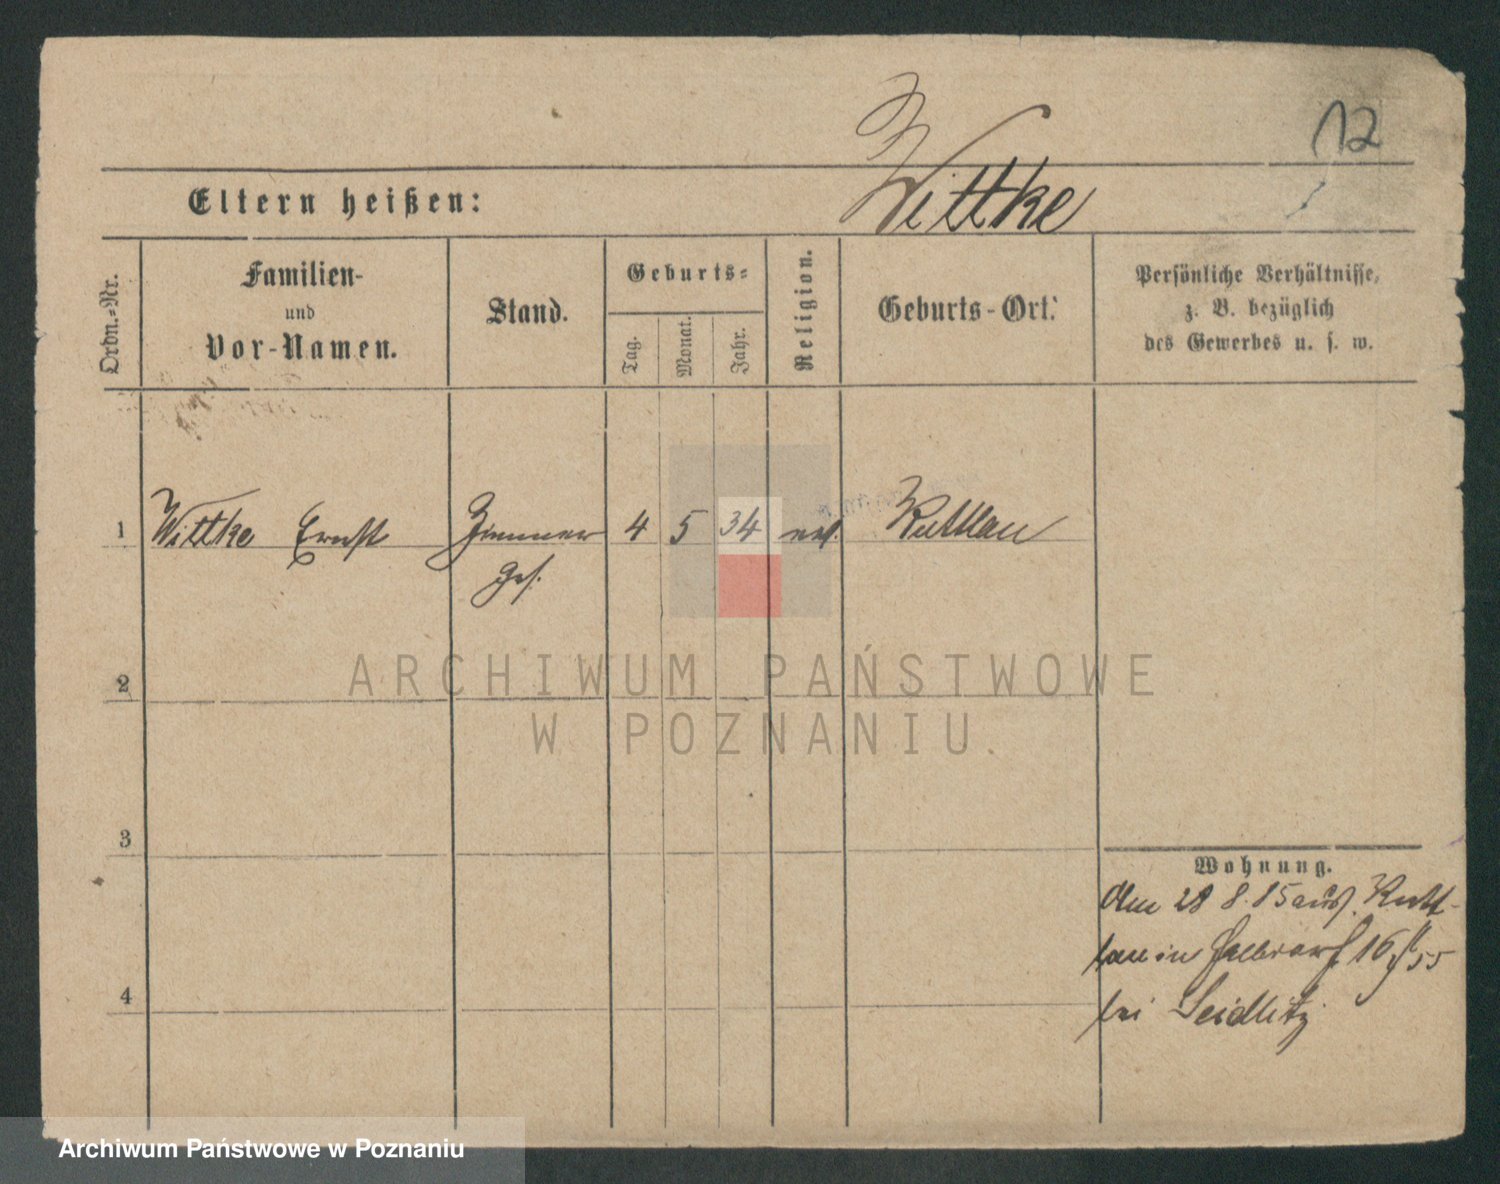 12
Wittke
Eltern heißen:
Ordn.-Nr.
Familien-
und
Vor-Namen.
Stand.
Geburts-
Tag.
Monat.
Jahr.
Religion.
Geburts-Ort.
Persönliche Verhältnisse,
z. B. bezüglich
des Gewerbes u. s. w.
1 Wittke Ernst Zimmer 4 5 34 Kuttlau
ges.
2
3
4
Wohnung.
28 8. 85 aus Kutt-
lau in 16
bei Seidlitz
ARCHIWUM PAŃSTWOWE
W POZNANIU
Archiwum Państwowe w Poznaniu